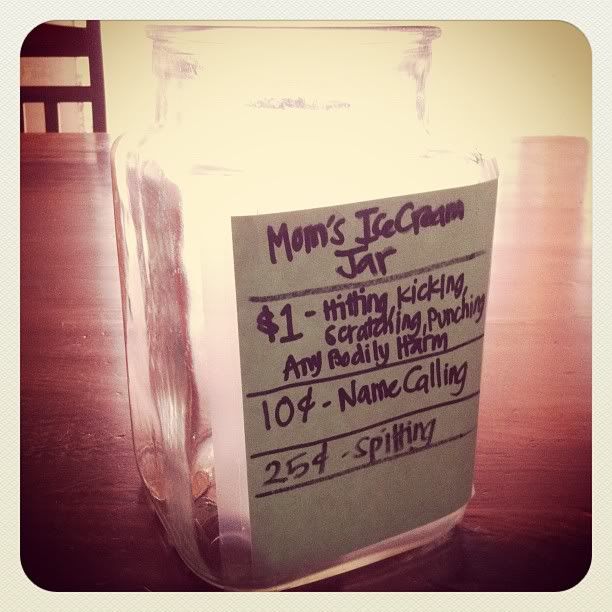 Mom's Ice Cream
Jar
$1 - Hitting, Kicking,
Scratching, Punching
Any Bodily Harm
10¢ - Name Calling
25¢ - Spitting